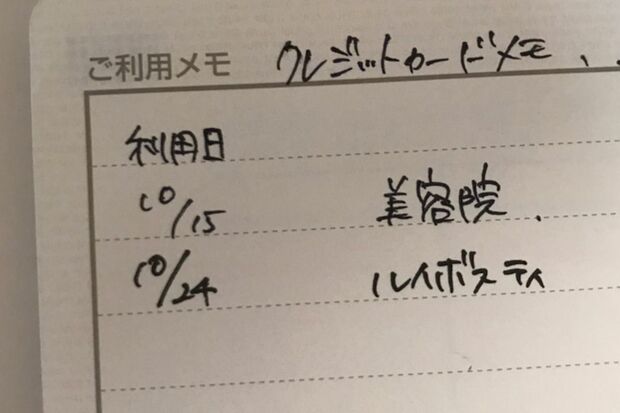 ご利用メモ クレジットカードメモ、
利用日
10/15 美容院、
10/24 ルイボスティ